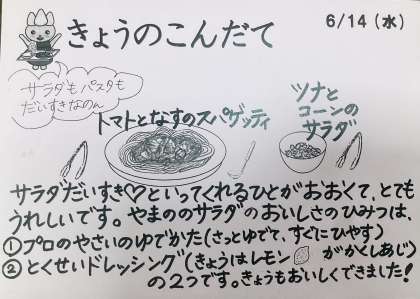 きょうのこんだて
6/14（水）
サラダもパスタも
だいすきなのん
トマトとなすのスパゲッティ
ツナと
コーンの
サラダ
サラダだいすき♡といってくれるひとがおおくて、とても
うれしいです。やまののサラダのおいしさのひみつは、
①プロのやさいのゆでかた（さっとゆでて、すぐにひやす）
②とくせいドレッシング（きょうはレモンがかくしあじ）
の2つです。きょうもおいしくできました！